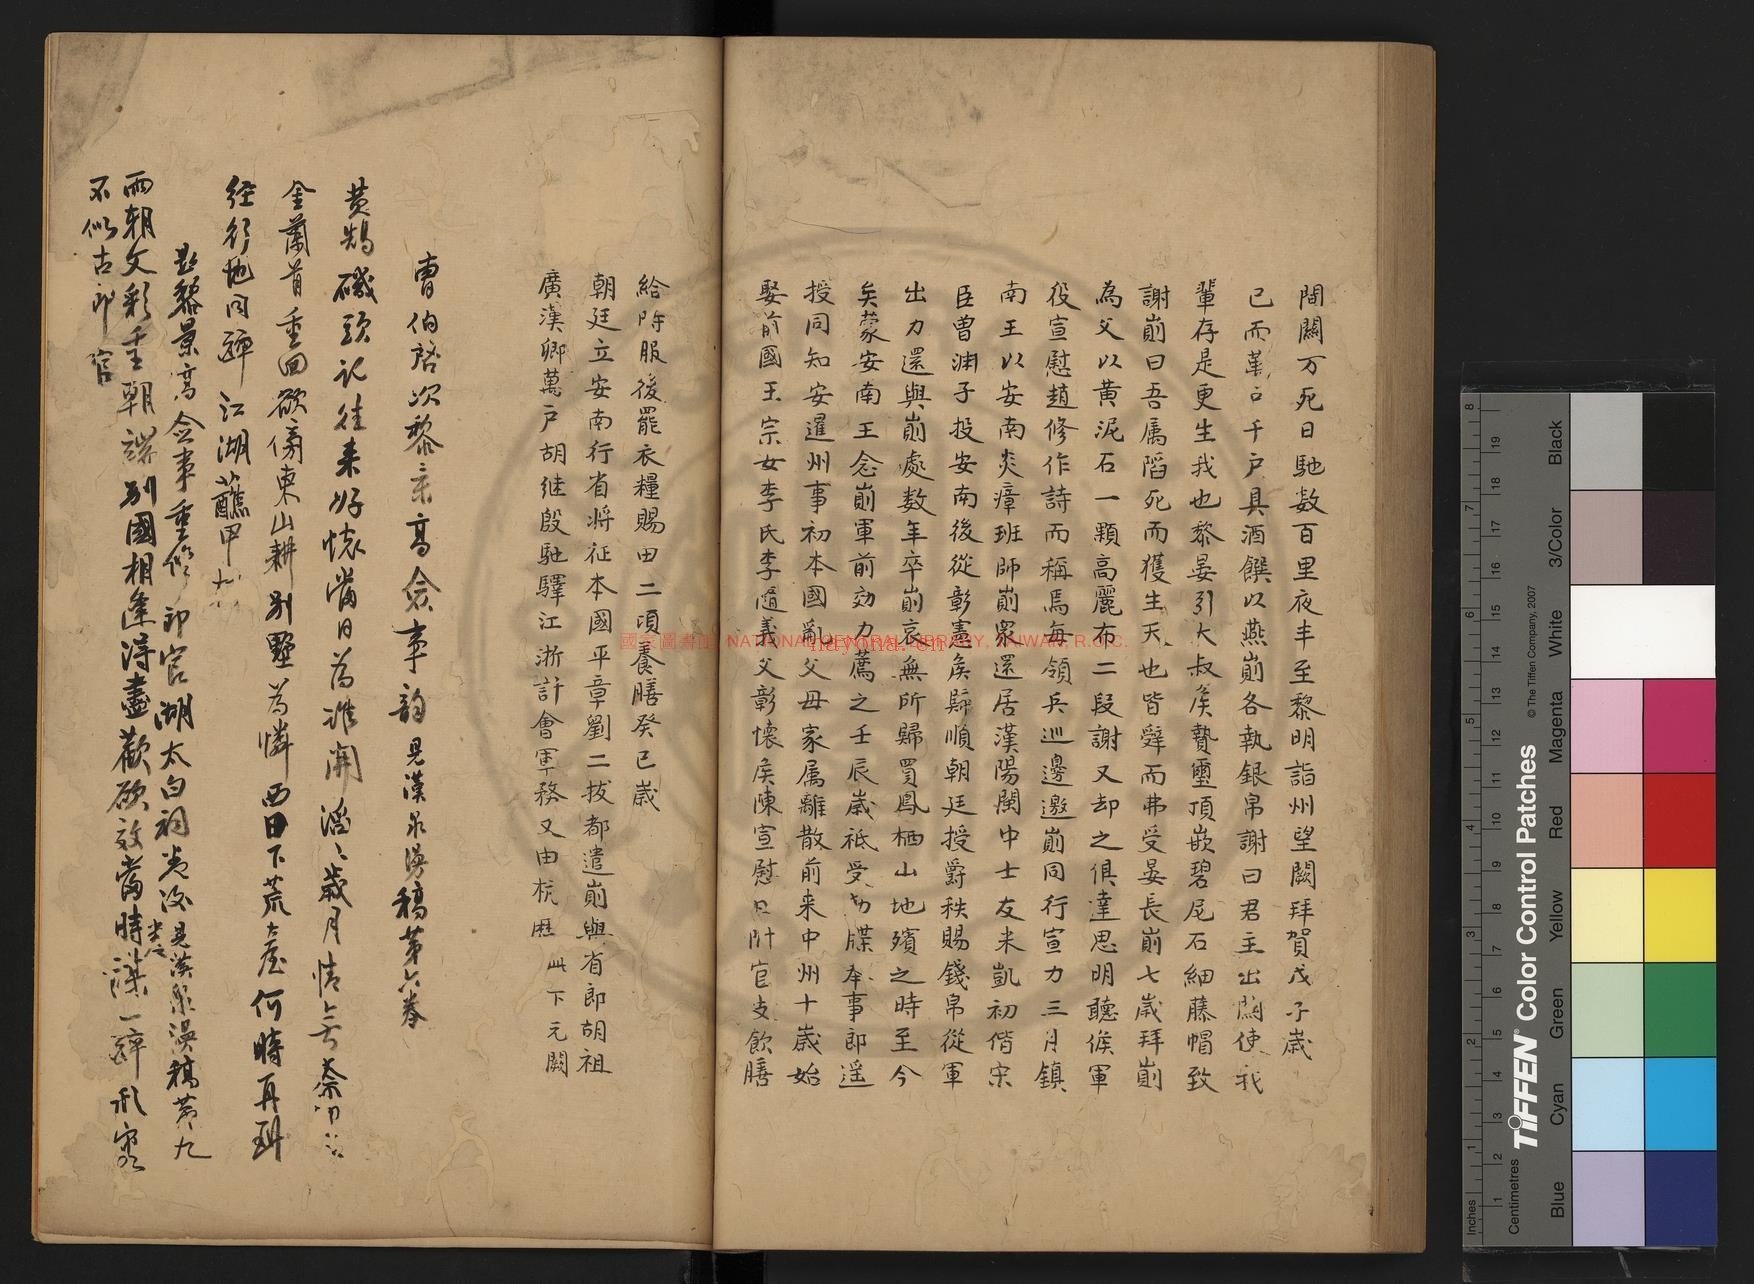 間關万死日馳数百里夜半至黎明詣州望闕拜賀戊子歳
已而萬戸千戸具酒饌以燕崱各執銀帛謝曰君主出關使我
輩存是更生我也黎晏引大叔矦贄璽頂嵌碧尼石細藤帽致
謝崱曰吾属陷死而獲生天也皆辤而弗受晏長崱七歳拜崱
為父以黃泥石一顆高麗布二段謝又却之俱達思明聽候軍
役宣慰趙修作詩而稱焉每領兵巡邊邀崱同行宣力三月鎮
南王以安南炎瘴班師崱眾還居漢陽閫中士友来凱初偕宋
臣曽渊子投安南後從彰憲矦歸順朝廷授爵秩賜錢帛從軍
出力還與崱處数年卒崱哀無所歸買鳳栖山地殯之時至今
矣蒙安南王念崱軍前効力薦之壬辰歳祗受勅牒奉事郎遥
授同知安暹州事初本國亂父母家属離散前来中州十歳始
娶前國王宗女李氏李隨義父彰懷矦陳宣慰日附官支飲膳
給時服後罷衣糧賜田二項養膳癸巳歳
朝廷立安南行省将征本國平章劉二拔都遣崱與省郎胡祖
廣漢卿萬戸胡继殷馳驛江浙計會軍務又由杭歴 此下元闕
曹伯啓次黎景高僉事韵 見漢泉漫稿第六卷
黄鵠磯頭記往来好懐當日為誰開滔〻歳月情無奈
金蘭首重回欲傍東山耕别墅為憐西日下荒臺何時再到
経行地同醉江湖蘸甲
題黎景高僉事重修郎官湖太白祠卷後 見漢泉漫稿第九
兩朝文彩重朝端别國相逢淂盡歡欲效當時一醉形容
不似古郎官
國家圖書館, NATIONAL CENTRAL LIBRARY, TAIWAN, R.O.C.
TIFFEN Color Control Patches
© The Tiffen Company, 2007
Inches
Centimetres
Blue
Cyan
Green
Yellow
Red
Magenta
White
3/Color
Black